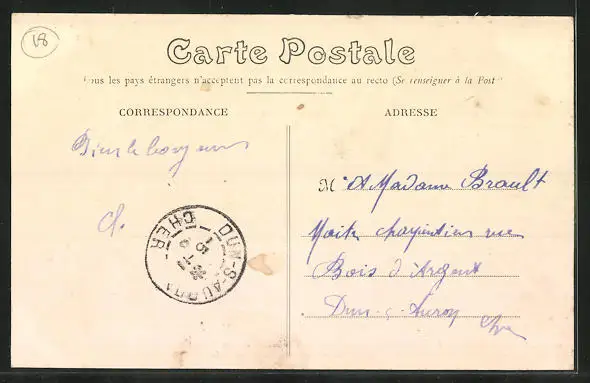 18
Carte Postale
Tous les pays étrangers n'acceptent pas la correspondance au recto (Se renseigner à la Poste
CORRESPONDANCE
ADRESSE
Bien le bonjour
M A Madame Brault
Maitre charpentier rue
Bois d'Argent
Dun-s-Auron
Cher
DUN-S-AURON
CHER